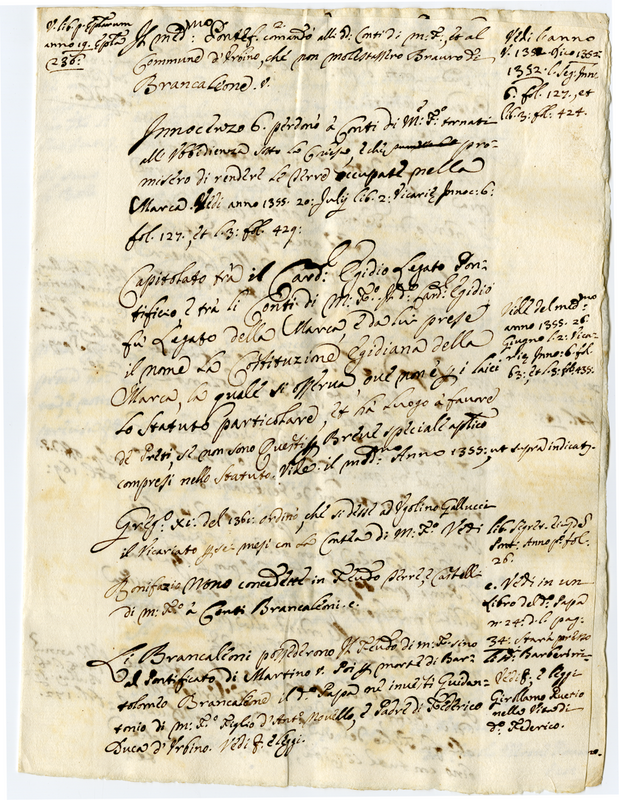 V. lib. p. Eplarum
anno 19. Epla
236.
Il med.mo Pontef. comandò alli di Conti di M. F. et al
Commun d'Urbino, che non molestassero Brauro de
Brancaleone. V.
Vedi l'anno
1352. l. Seg. Inn.
6. fol. 127. et
lib. 3. fol. 424.
Innocenzo 6. perdonò à Conti di M. F. tornati
all'Obbedienza pro-
misero di rendere le terre occupate nella
Marca. Vedi anno 1355. 20: July lib. 2: Vicariæ Innoc: 6:
fol. 127. et l. 3: fol. 429:
Capitolato trà il Card. Egidio Legato Pon-
tificio e trà li Conti di M. F. Il d. Card. Egidio
fù Legato della Marca, e da lui prese
il nome la Costituzione Egidiana della
Marca, la quale si osserva, ove non è p. i laici
lo Statuto particolare, et hà luogo à favore
de Preti, se non sono Breve speciale aplico
compresi nello Statuto. Vide il med. Anno 1355: ut supra indicat.
Vide del med.mo
anno 1355. 26
Giugno l. 2: Vica-
riæ Inno: 6. fol.
63: et l. 3: fol. 435.
Greg. XI. del 1361. ordinò, che si desse ad Ugolino Gallucci
il Vicariato p. sei mesi la Contea di M. F. Vedi
lib.
Pont. Anno p. fol.
26.
Bonifazio Nono concedette in Feudo terre, e Castelli
di M. F. à Conti Brancaleoni. e.
e. Vedi in un
Libro del d. Papa
n. 24. d. l. pag.
34. starà presso
li di Barberini
Li Brancaleoni possederono il Feudo di M. F. sino
al Pontificato di Martino V. Poi p. morte di Bar-
tolomeo Brancaleone il d. Papa ne investì Guidan-
tonio di M. F. figlio d'Ant. Novello, e Padre di Federico
Duca d'Urbino. Vedi f. e leggi.
Vedi f. e leggi
Girolamo Muzio
nella Vita di
d. Federico.